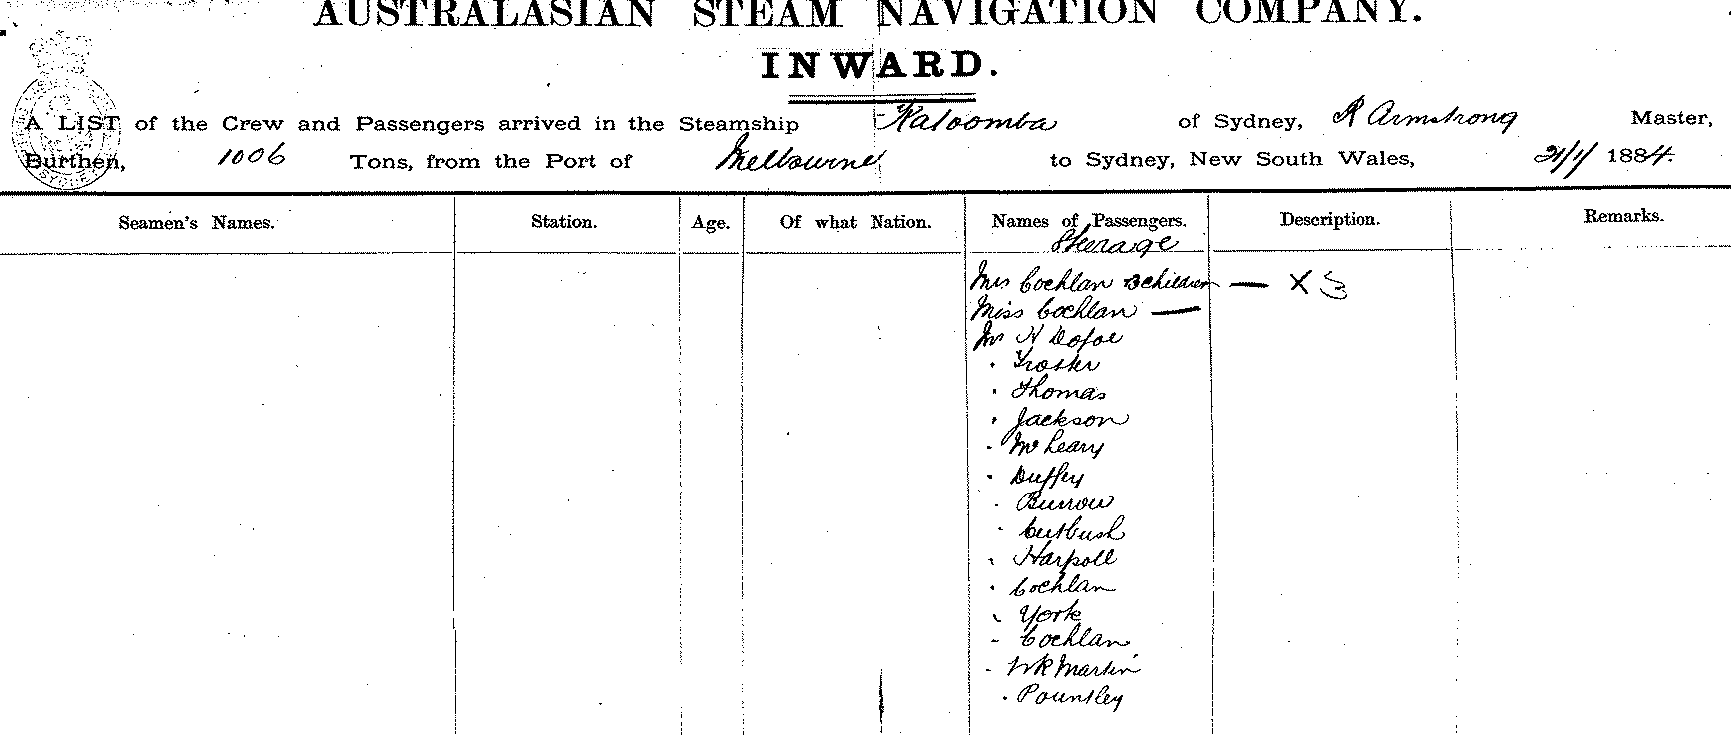 AUSTRALASIAN STEAM NAVIGATION COMPANY.
INWARD.
A LIST of the Crew and Passengers arrived in the Steamship Katoomba of Sydney, R Armstrong Master,
Burthen, 1006 Tons, from the Port of Melbourne to Sydney, New South Wales, 21/1/ 1884.
Seamen's Names. Station. Age. Of what Nation. Names of Passengers. Description. Remarks.
Steerage
Mrs Cochlan 3 children — X 3
Miss Cochlan —
Mr H Dofoe
" Troster
" Thomas
" Jackson
" McLeary
" Duffey
" Burrow
" Cutbush
" Harpoll
" Cochlan
" York
" Cochlan
" W R Martin
" Pountley